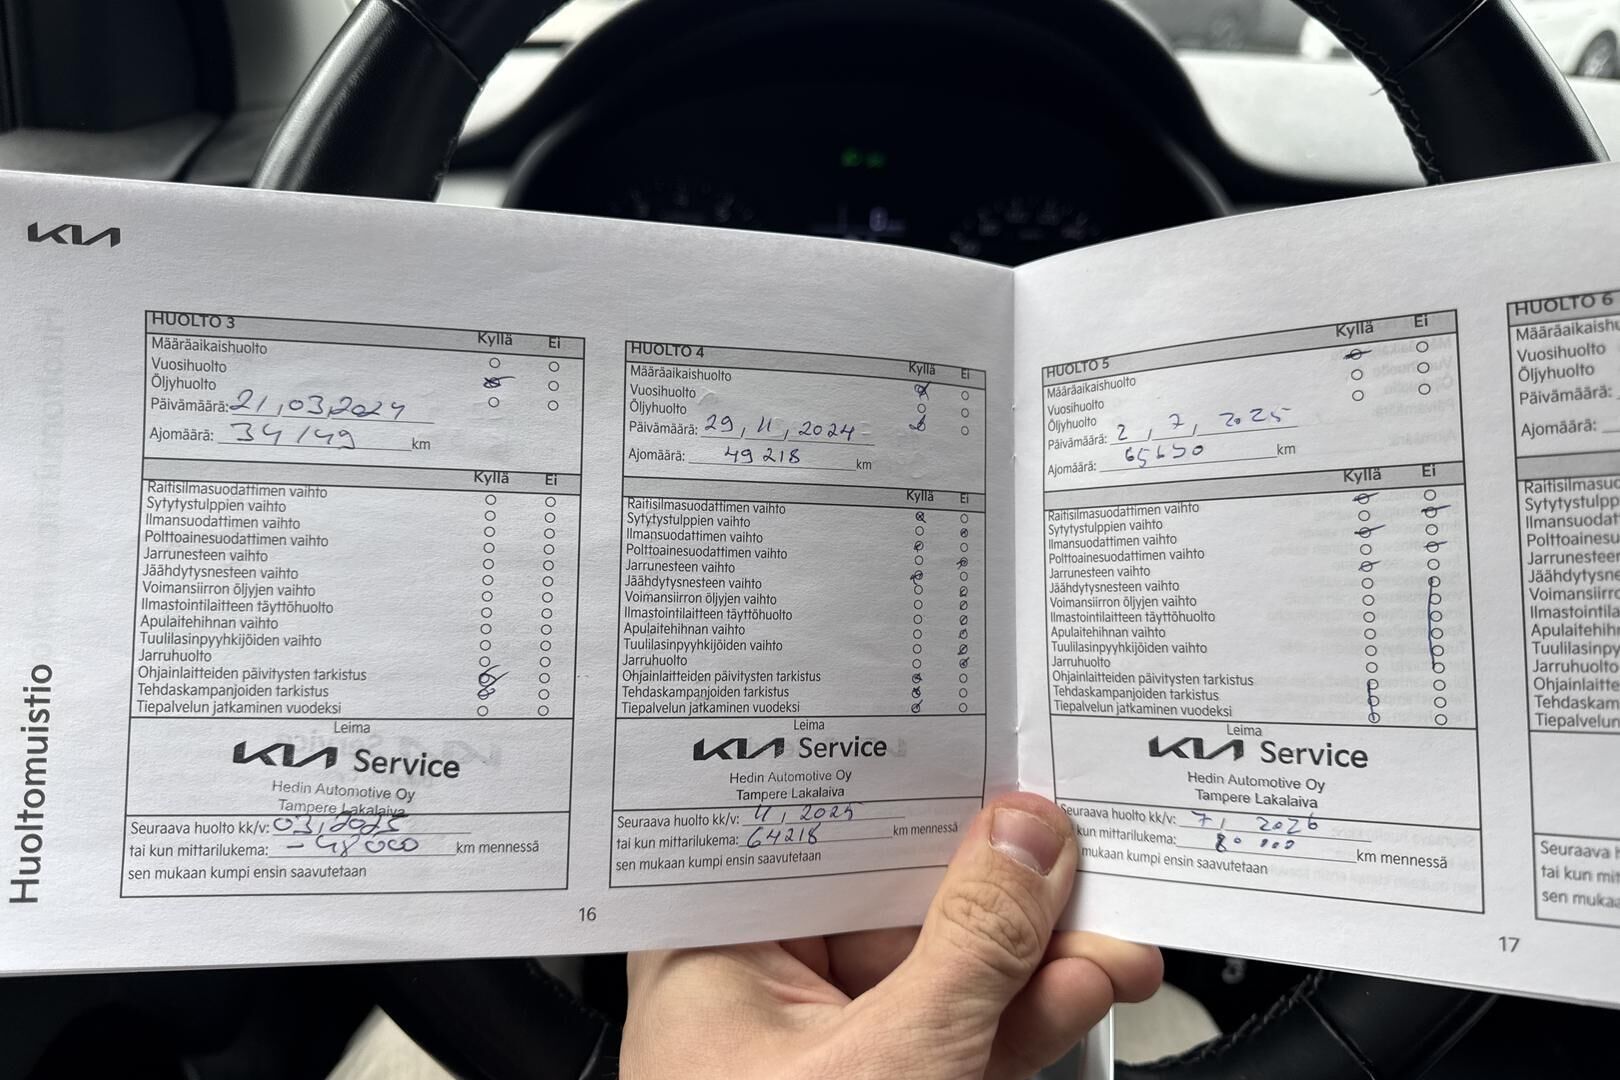 KIA
Huoltomuistio
HUOLTO 3
Kyllä Ei
Määräaikaishuolto
Vuosihuolto
Öljyhuolto
Päivämäärä: 21,03,2024
Ajomäärä: 34149 km
Kyllä Ei
Raitisilmasuodattimen vaihto
Sytytystulppien vaihto
Ilmansuodattimen vaihto
Polttoainesuodattimen vaihto
Jarrunesteen vaihto
Jäähdytysnesteen vaihto
Voimansiirron öljyjen vaihto
Ilmastointilaitteen täyttöhuolto
Apulaitehihnan vaihto
Tuulilasinpyyhkijöiden vaihto
Jarruhuolto
Ohjainlaitteiden päivitysten tarkistus
Tehdaskampanjoiden tarkistus
Tiepalvelun jatkaminen vuodeksi
Leima
KIA Service
Hedin Automotive Oy
Tampere Lakalaiva
Seuraava huolto kk/v: 03,2025
tai kun mittarilukema: -48000 km mennessä
sen mukaan kumpi ensin saavutetaan
HUOLTO 4
Kyllä Ei
Määräaikaishuolto
Vuosihuolto
Öljyhuolto
Päivämäärä: 29, 11, 2024
Ajomäärä: 49 218 km
Kyllä Ei
Raitisilmasuodattimen vaihto
Sytytystulppien vaihto
Ilmansuodattimen vaihto
Polttoainesuodattimen vaihto
Jarrunesteen vaihto
Jäähdytysnesteen vaihto
Voimansiirron öljyjen vaihto
Ilmastointilaitteen täyttöhuolto
Apulaitehihnan vaihto
Tuulilasinpyyhkijöiden vaihto
Jarruhuolto
Ohjainlaitteiden päivitysten tarkistus
Tehdaskampanjoiden tarkistus
Tiepalvelun jatkaminen vuodeksi
Leima
KIA Service
Hedin Automotive Oy
Tampere Lakalaiva
Seuraava huolto kk/v: 11, 2025
tai kun mittarilukema: 64218 km mennessä
sen mukaan kumpi ensin saavutetaan
16
HUOLTO 5
Kyllä Ei
Määräaikaishuolto
Vuosihuolto
Öljyhuolto
Päivämäärä: 2, 7, 2025
Ajomäärä: 65650 km
Kyllä Ei
Raitisilmasuodattimen vaihto
Sytytystulppien vaihto
Ilmansuodattimen vaihto
Polttoainesuodattimen vaihto
Jarrunesteen vaihto
Jäähdytysnesteen vaihto
Voimansiirron öljyjen vaihto
Ilmastointilaitteen täyttöhuolto
Apulaitehihnan vaihto
Tuulilasinpyyhkijöiden vaihto
Jarruhuolto
Ohjainlaitteiden päivitysten tarkistus
Tehdaskampanjoiden tarkistus
Tiepalvelun jatkaminen vuodeksi
Leima
KIA Service
Hedin Automotive Oy
Tampere Lakalaiva
Seuraava huolto kk/v: 7, 2026
kun mittarilukema: 80 000 km mennessä
mukaan kumpi ensin saavutetaan
HUOLTO 6
Määräaikaishu
Vuosihuolto
Öljyhuolto
Päivämäärä:
Ajomäärä:
Raitisilmasuo
Sytytystulpp
Ilmansuodat
Polttoainesu
Jarrunesteen
Jäähdytysne
Voimansiirro
Ilmastointila
Apulaitehihn
Tuulilasinpyy
Jarruhuolto
Ohjainlaitte
Tehdaskam
Tiepalvelun
Seuraava h
tai kun mit
sen muka
17